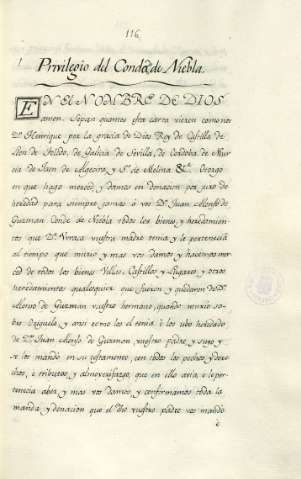 116.
1
Privilegio del Conde de Niebla.
EN EL NOMBRE DE DIOS
amen. Sepan quantos esta carta vieren como nos
Dn. Henrique por la gracia de Dios Rey de Castilla de
Leon de Toledo, de Galicia de Sevilla, de Cordoba, de Mur
cia de Jaen de Algecira, y Sr. de Molina &a. Otorgo
en que hago merced, y damos en donacion por juro de
heredad para siempre jamas à vos Dn. Juan Alonso de
Guzman Conde de Niebla todos los bienes, y heredamien
tos que Da. Urraca vuestra madre tenia y le pertenecia
al tiempo que murio y mas vos damos y hacemos mer
ced de todos los bienes Villas, Castillos, y Lugares, y otros
heredamientos qualesquier que fueron, y quedaron de Dn.
Alonso de Guzman vuestro hermano, quando murio so
bre y ansi como los el tenia è los ubo heredado,
de Dn. Juan Alonso de Guzman vuestro padre, y suyo y
se los mandò en su testamento, con todos los pechos, y dere
chos, è tributos, y almoxarifazgo, que en ello avia, è le per
tenecia aber, y mas vos damos, y confirmamos toda la
manda, y donacion que el dho vuestro padre vos mandò
è